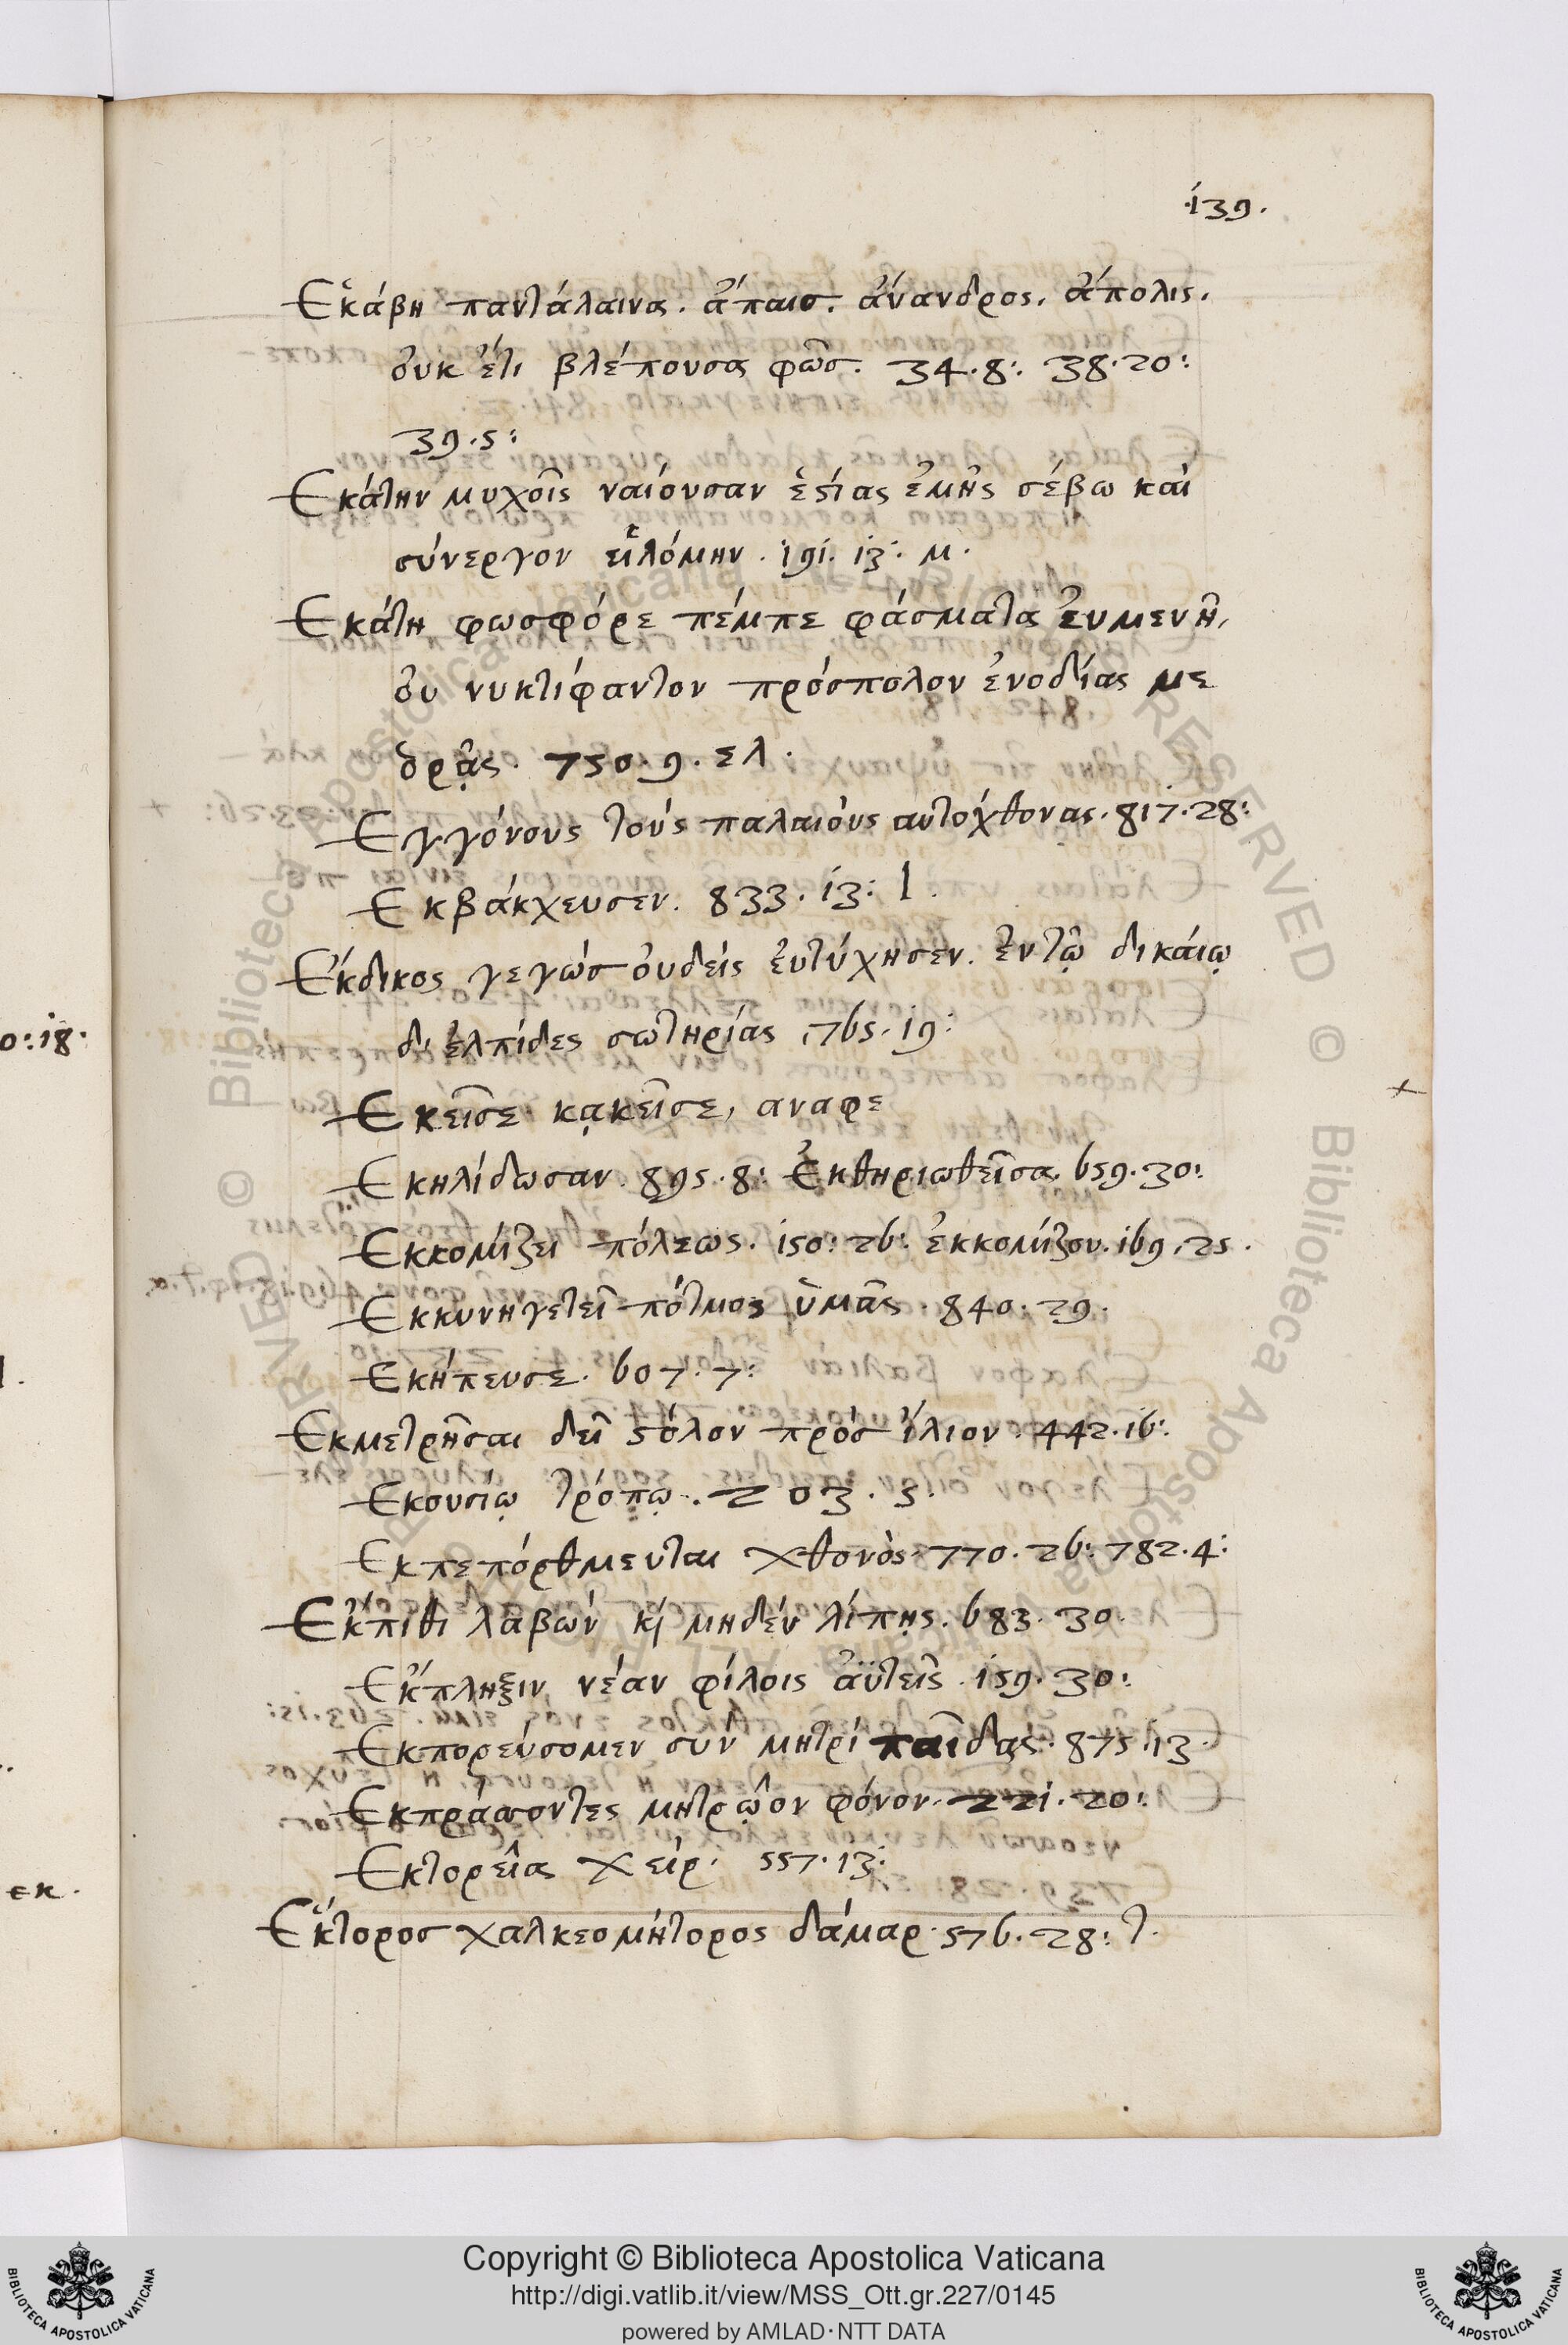 ·139.
Ἑκάβη παντάλαινα. ἄπαισ. ἄνανδρος. ἄπολις.
ὀυκ ἔτι βλέπουσα φῶσ. 34.8: 38.20:
39.5:
Εκάτην μυχοῖς ναίουσαν ἑϛίας ἐμῆς σέβω καὶ
σύνεργον εἱλόμην. 191. 13: μ.
Εκάτη φωσφόρε πέμπε φάσματα ἐυμενῆ,
ὀυ νυκτίφαντον πρόσπολον ἐνοδίας με
δρᾷς. 750.9. ελ.
Εγγόνους τοὺς παλαιὀυς αυτοχθονας. 817.28:
Εκβάκχευσεν. 833. 13: l.
Ἔκδικος γεγώσ ὀυδεὶς ἐυτύχησεν. ἐν τῷ δικάιῳ
δ' ἐλπίδες σωτηρίας. 765. 19:
Εκεῖσε κᾳκεῖσε, αναφε
Εκηλίδωσαν. 895.8: Ἐκθηριωθεῖσα. 659.30:
Εκκομίζει πόλεως. 150: 26: ἐκκομίζου. 169.25.
Εκκυνηγετεῖ πότμος ὑμᾶς. 840. 29.
Εκήπευσε. 607. 7:
Εκμετρῆσαι δεῖ ϛόλον πρὸσ ἴλιον. 442. 16:
Εκουσίῳ τρόπῳ. 203. 5.
Εκπεπόρθμευται χθονὸς. 770. 26: 782.4:
Ἔκπιθι λαβὼν κὶ μηδέν λίπῃς. 683. 30.
Ἔκπληξιν νέαν φίλοις ἀϋτεῖς. 159. 30:
Εκπορέυσομεν σὺν μητρὶ παῖδας. 875. 13.
Εκπράσσοντες μητρῷον φόνον. 221. 20:
Εκτορείας χεὶρ. 557. 13:
Ἕκτοροσ χαλκεομήτορος δάμαρ. 576. 28: τ.
ο: 18.
εκ.
Copyright © Biblioteca Apostolica Vaticana
http://digi.vatlib.it/view/MSS_Ott.gr.227/0145
powered by AMLAD·NTT DATA
BIBLIOTECA APOSTOLICA VATICANA
BIBLIOTECA APOSTOLICA VATICANA